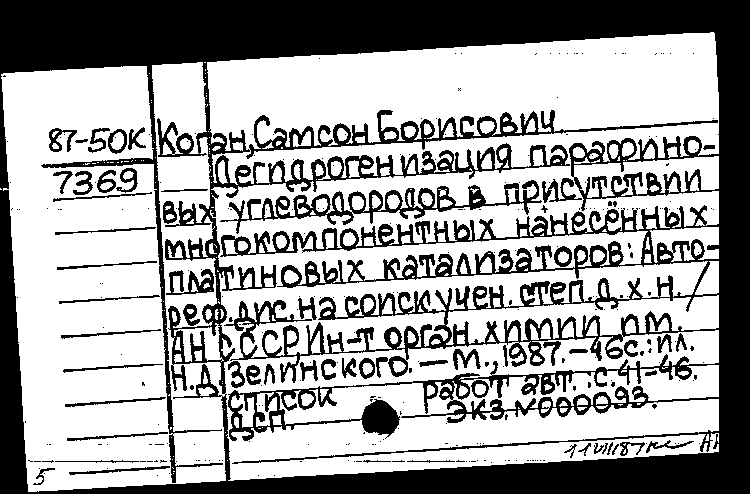 87-50К Коган, Самсон Борисович.
7369 Дегидрогенизация парафино-
вых углеводородов в присутствии
многокомпонентных нанесённых
платиновых катализаторов: Авто-
реф. дис. на соиск. учен. степ. д. х. н. /
АН СССР, Ин-т орган. химии им.
Н.Д. Зелинского. — М., 1987. – 46с.: ил.
список работ авт.: с. 41-46.
Дсп. Экз. №000093.
5